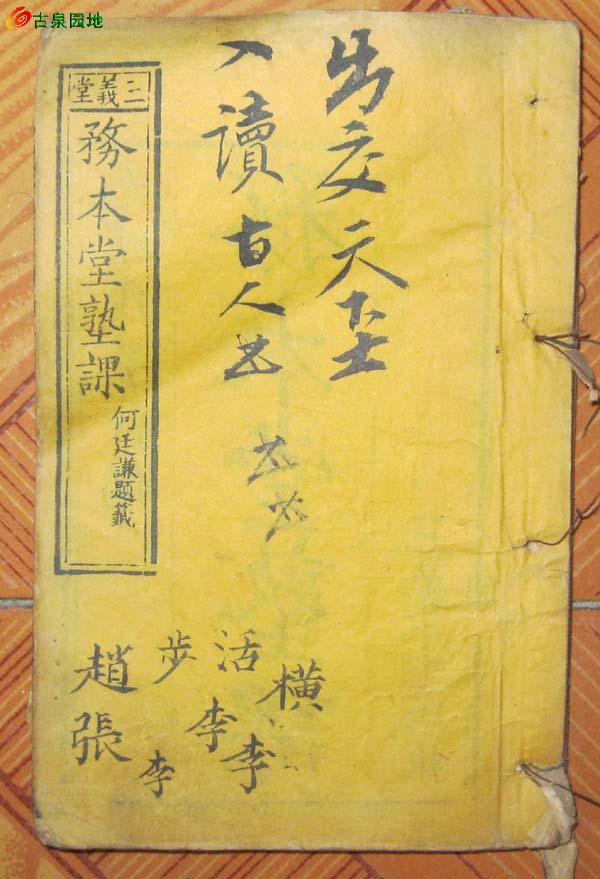 古泉园地
出交天下士
入讀古人书
三義堂
務本堂塾課
何廷謙題籤
横李
活李
步李
趙張